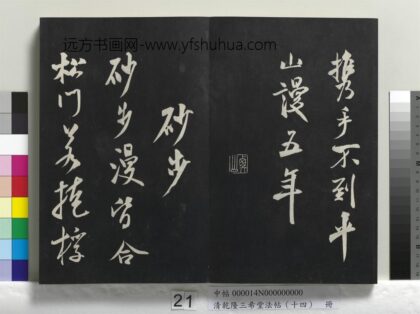 远方书画网-www.yfshuhua.com
携手不到平
山谩五年
砂步
砂步漫皆合
松门若掩桴
21
中帖 000014N000000000
清乾隆三希堂法帖（十四） 册